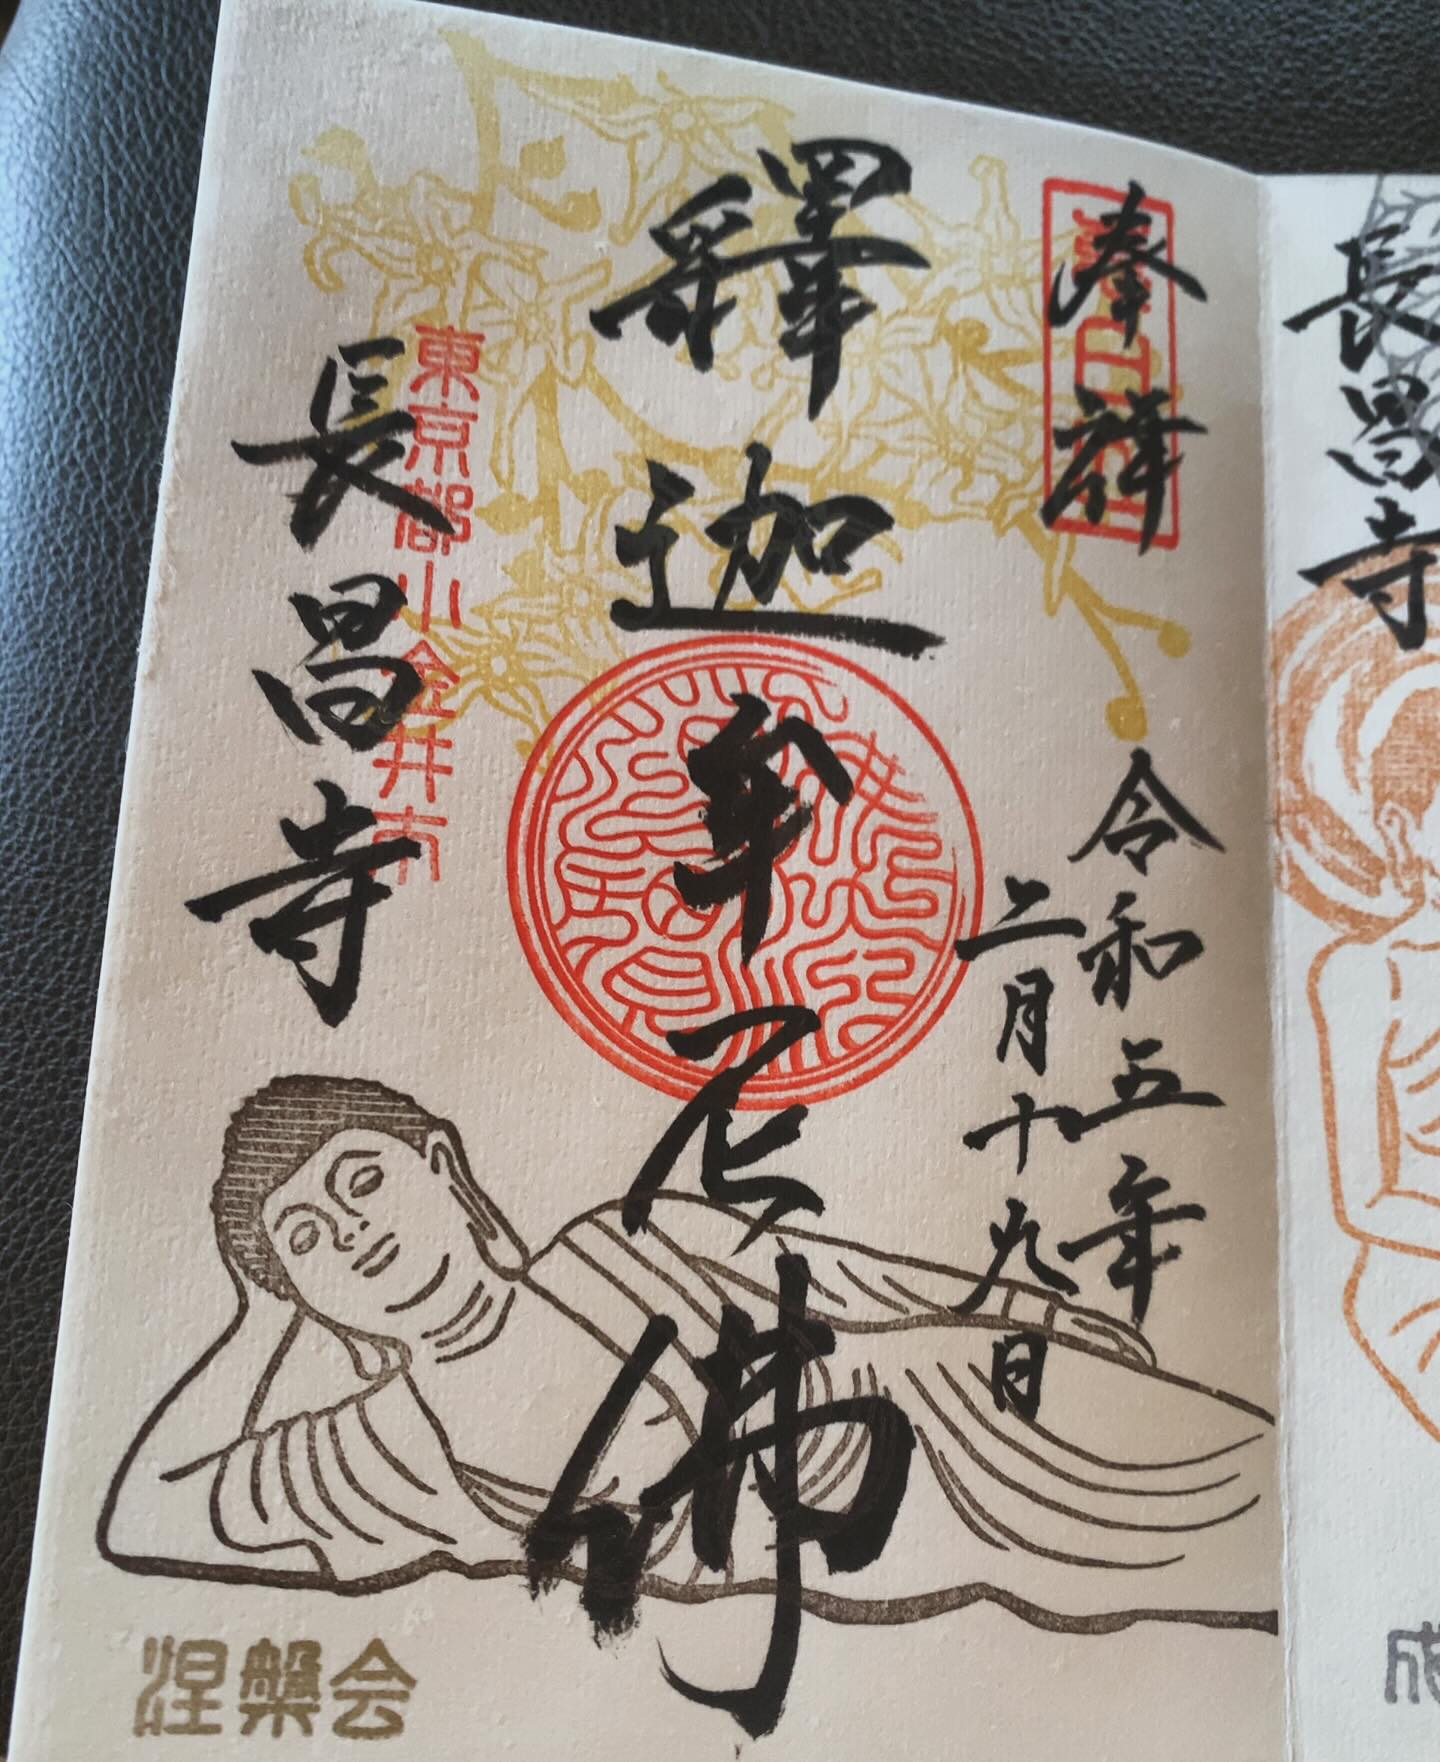 長昌寺
成
奉拝
令和五年
二月十九日
釋迦牟尼佛
東京都小金井市
長昌寺
涅槃会